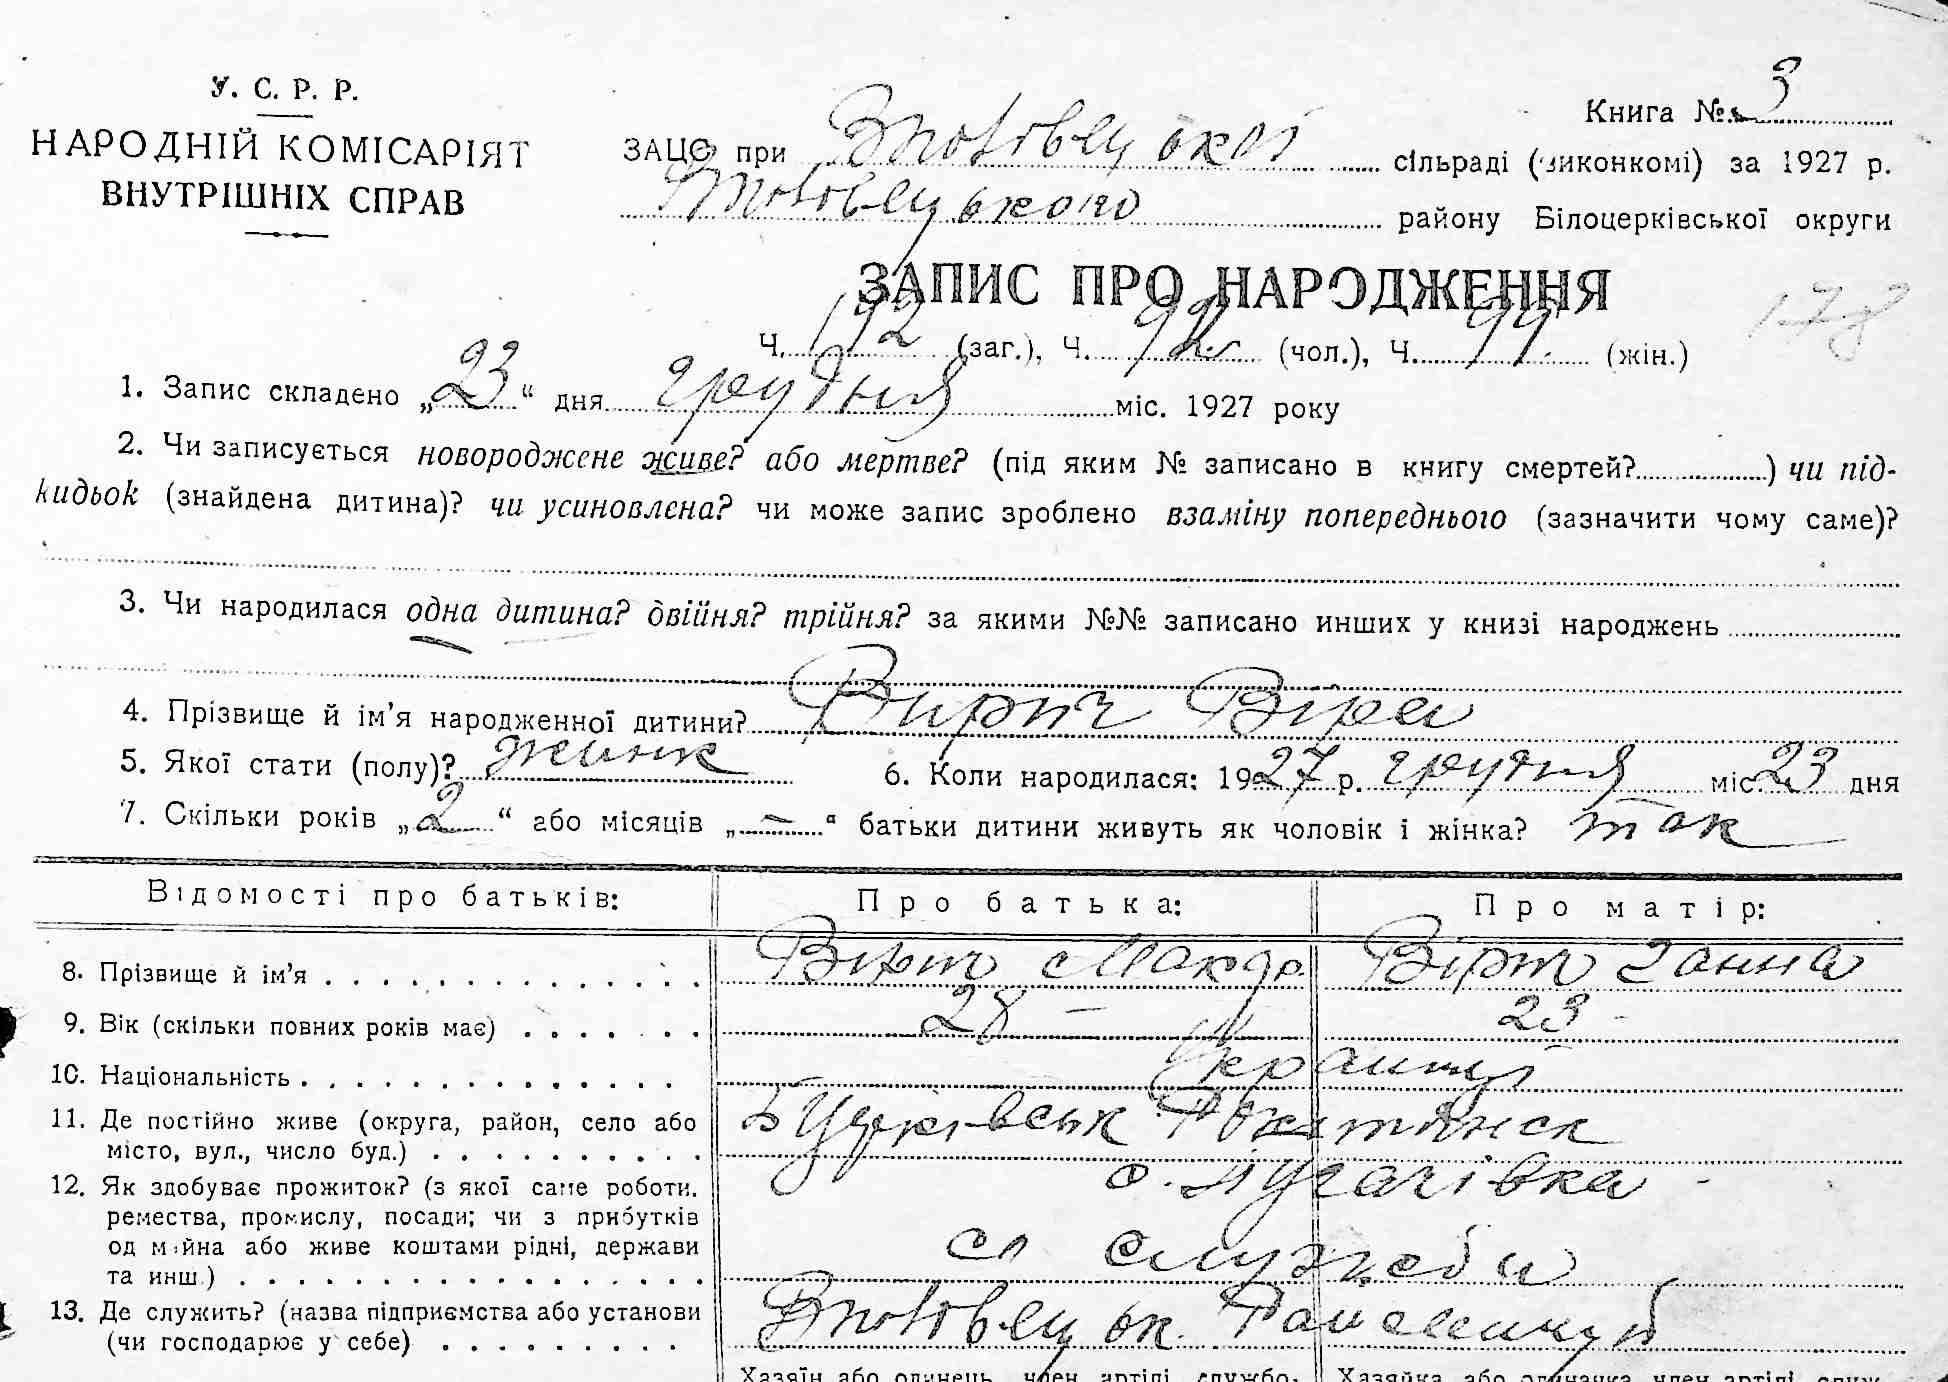 У. С. Р. Р.
НАРОДНІЙ КОМІСАРІЯТ
ВНУТРІШНІХ СПРАВ
Книга № 3
ЗАЦС при сільраді (виконкомі) за 1927 р.
району Білоцерківської округи
ЗАПИС ПРО НАРОДЖЕННЯ
178
Ч. 192 (заг.), Ч. (чол.), Ч. 99 (жін.)
1. Запис складено „23“ дня грудня міс. 1927 року
2. Чи записується новороджене живе? або мертве? (під яким № записано в книгу смертей?) чи під-
кидьок (знайдена дитина)? чи усиновлена? чи може запис зроблено взаміну попереднього (зазначити чому саме)?
3. Чи народилася одна дитина? двійня? трійня? за якими №№ записано инших у книзі народжень
4. Прізвище й ім’я народженної дитини? Вирт Віра
5. Якої стати (полу)? жинк 6. Коли народилася: 1927 р. грудня міс. 23 дня
7. Скільки років „2“ або місяців „—“ батьки дитини живуть як чоловік і жінка? так
Відомості про батьків: Про батька: Про матір:
8. Прізвище й ім’я Вірт Вірт Ганна
9. Вік (скільки повних років має) 28 – 23 -
10. Національність
11. Де постійно живе (округа, район, село або
місто, вул., число буд.)
с. Пугачівка
12. Як здобуває прожиток? (з якої саме роботи.
ремества, промислу, посади; чи з прибутків
од майна або живе коштами рідні, держави
та инш.) служби
13. Де служить? (назва підприємства або установи
(чи господарює у себе)
Хазяїн або одинець, член артілі, службо- Хазяйка або одиначка, член артілі, служ-